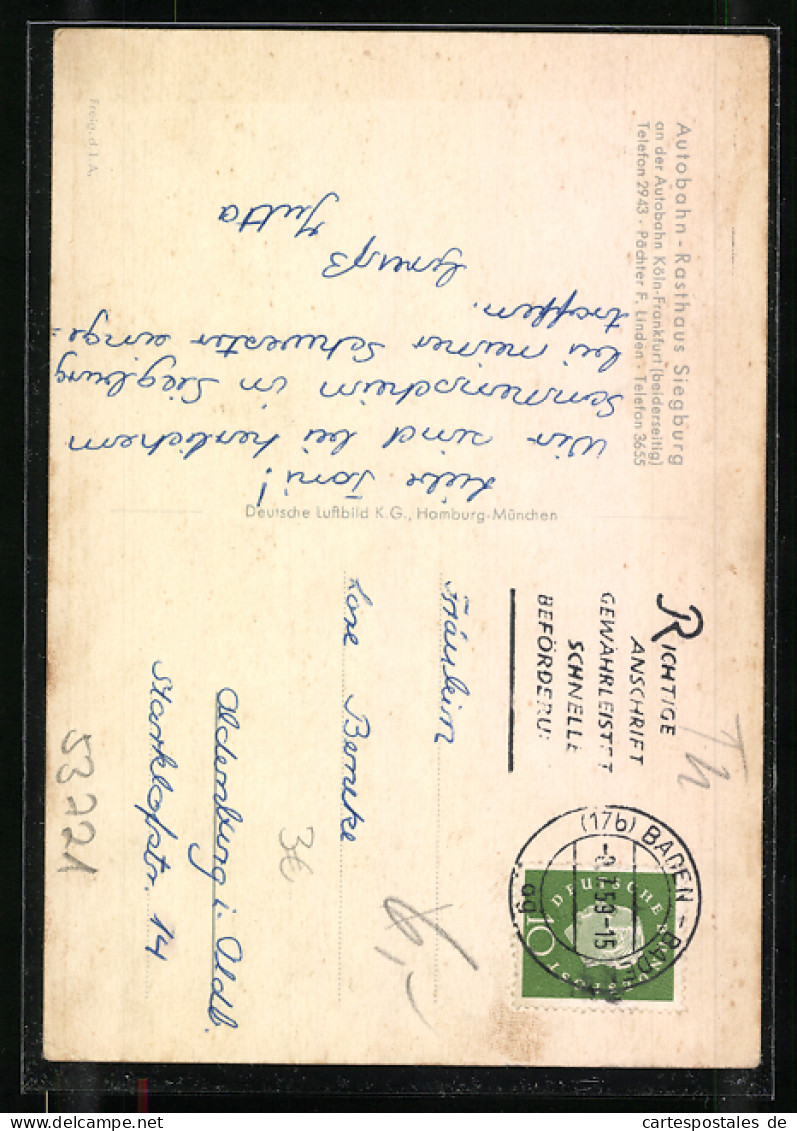 Autobahn-Rasthaus Siegburg
an der Autobahn Köln-Frankfurt (beiderseitig)
Telefon 2943 · Pächter F. Linden · Telefon 3655
Liebe Toni!
Wir sind bei herrlichem
Sonnenschein in Siegburg
bei meiner Schwester einge=
troffen.
Gruß
Jutta
Freig. d. L.A.
Deutsche Luftbild K.G., Hamburg-München
RICHTIGE
ANSCHRIFT
GEWÄHRLEISTET
SCHNELLE
BEFÖRDERU
(17b) BADEN-BADEN
59-15
ag
DEUTSCHE BUNDESPOST
10
Fräulein
Lore
Oldenburg i. Oldb.
14
Th
6,-
53721
www.cartespostales.de